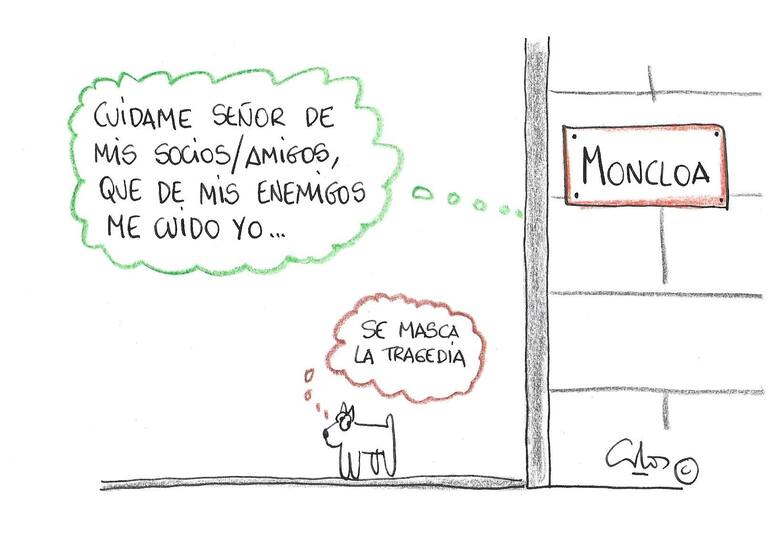 CUÍDAME SEÑOR DE
MIS SOCIOS/AMIGOS,
QUE DE MIS ENEMIGOS
ME CUIDO YO...
MONCLOA
SE MASCA
LA TRAGEDIA
Carlos ©